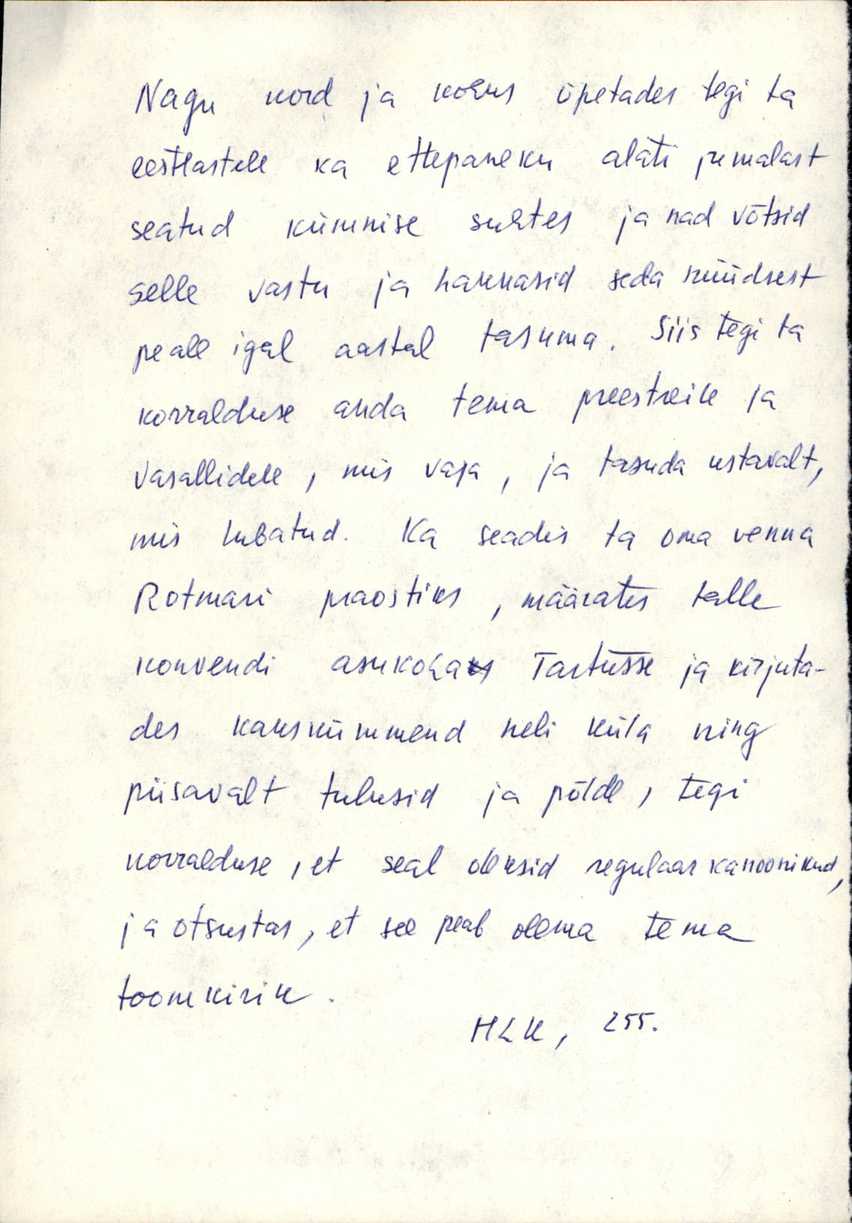 Nagu kord ja kohus õpetades tegi ta
eestlastele ka ettepaneku alati jumalast
seatud kümnise suhtes ja nad võtsid
selle vastu ja hakkasid seda nüüdsest
peale igal aastal tasuma. Siis tegi ta
korralduse anda tema preestreile ja
vasallidele, mis vaja, ja tasuda ustavalt,
mis lubatud. Ka seadis ta oma venna
Rotmari praostiks, määrates talle
konvendi asukoha Tartusse ja kirjuta-
des kakskümmend neli küla ning
piisavalt tulusid ja põlde, tegi
korralduse, et seal oleksid regulaarkanoonikud,
ja otsustas, et see peab olema tema
toomkirik.
HLK, 255.